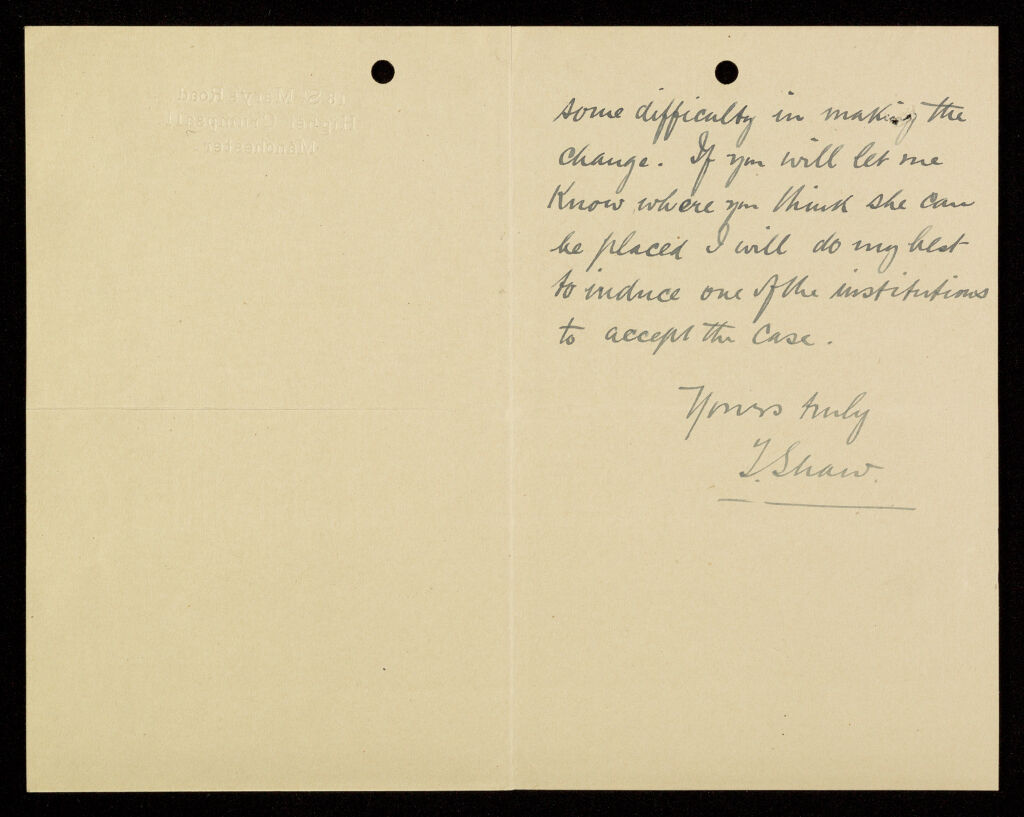 St Mary's Road
Higher Crumpsall
Manchester
some difficulty in making the
change. If you will let me
know where you think she can
be placed I will do my best
to induce one of the institutions
to accept the case.
Yours truly
T. Shaw.